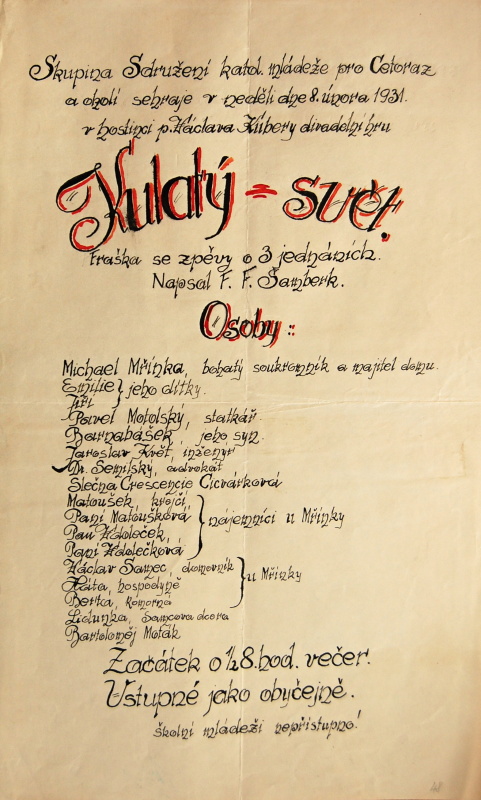 Skupina Sdružení katol. mládeže pro Cetoraz
a okolí sehraje v neděli dne 8. února 1931.
v hostinci p. Václava Kúbery divadelní hru
Kulatý = svět.
Fraška se zpěvy o 3 jednáních.
Napsal F. F. Šamberk.
Osoby :
Michael Mřínka, bohatý soukromník a majitel domu.
Emilie } jeho dítky.
Jiří
Pavel Motolský, statkář.
Barnabášek, jeho syn.
Jaroslav Květ, inženýr
Dr. Semilský, advokát
Slečna Crescencie Cicvárková
Matoušek, krejčí
Paní Matoušková } nájemníci u Mřínky
Pan Vdoleček,
Paní Vdolečková
Václav Samec, domovník
Káta, hospodyně } u Mřínky
Berta, komorná
Lidunka, Samcova dcera
Bartoloměj Moťák
Začátek o ½8. hod. večer.
Vstupné jako obyčejně.
školní mládeži nepřístupno!
48